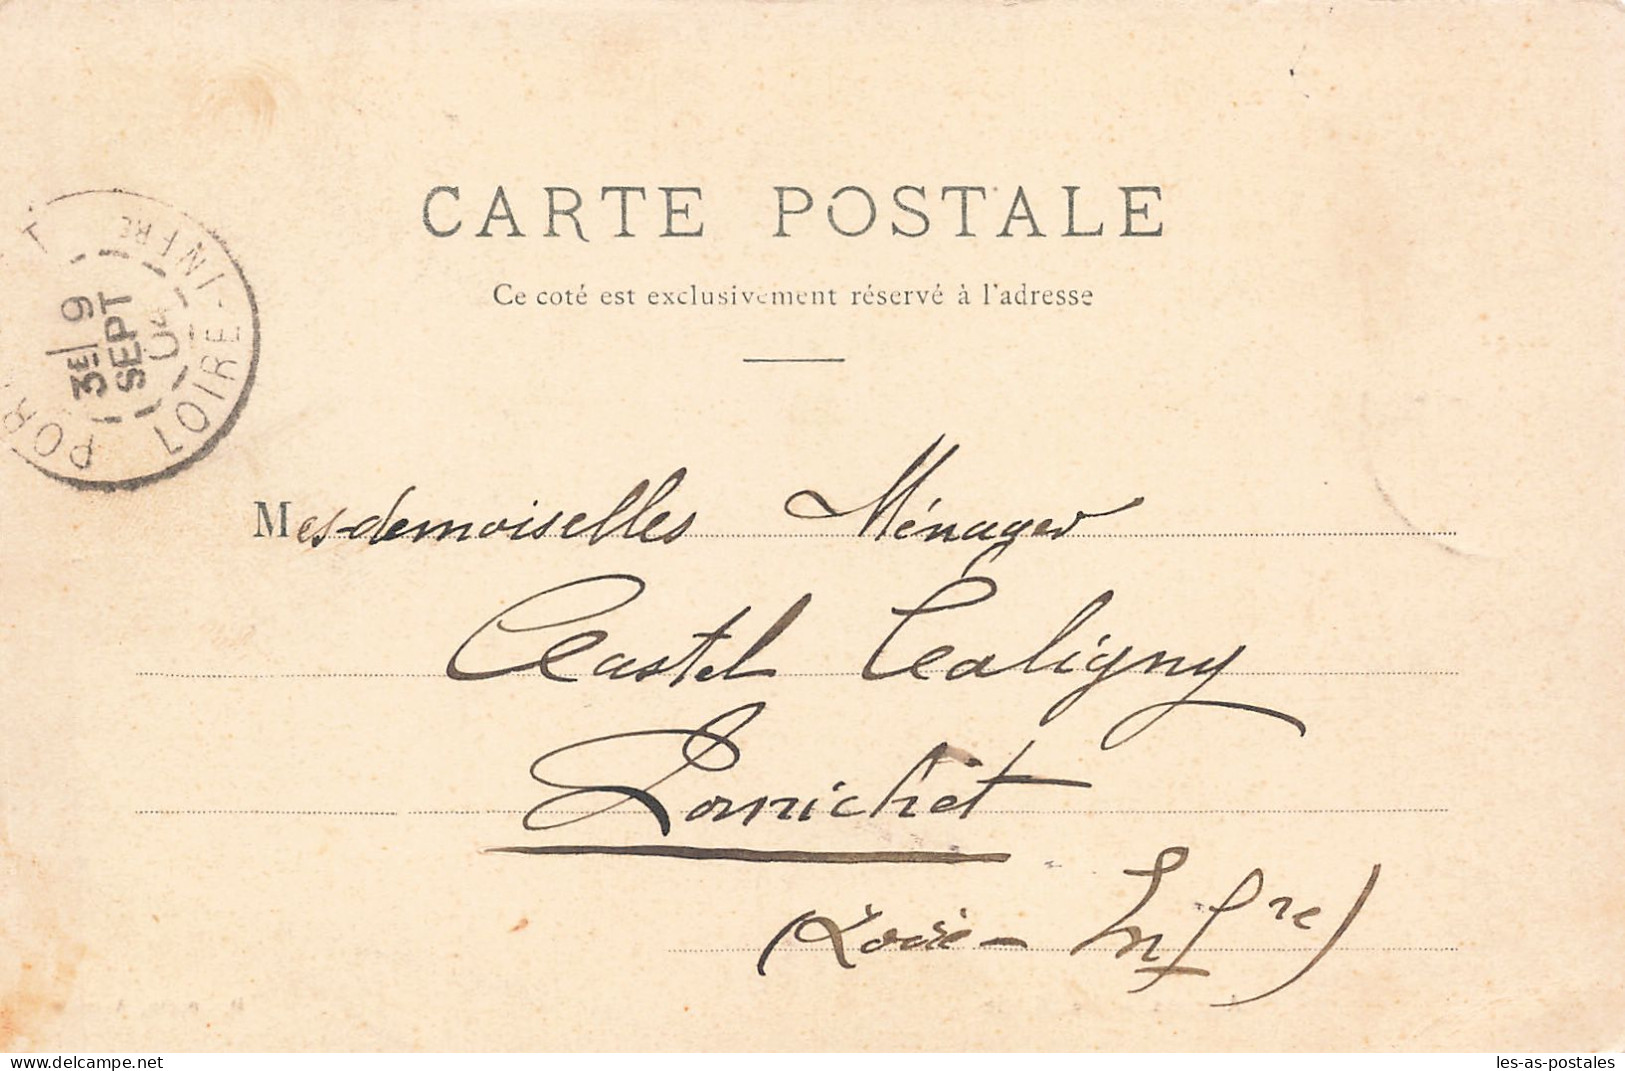 CARTE POSTALE
Ce coté est exclusivement réservé à l'adresse
POR T LOIRE-INFRE
3E 9
SEPT
04
Mesdemoiselles Ménager
Castel Caligny
Pornichet
(Loire-Infre)
delcampe.net
les-as-postales